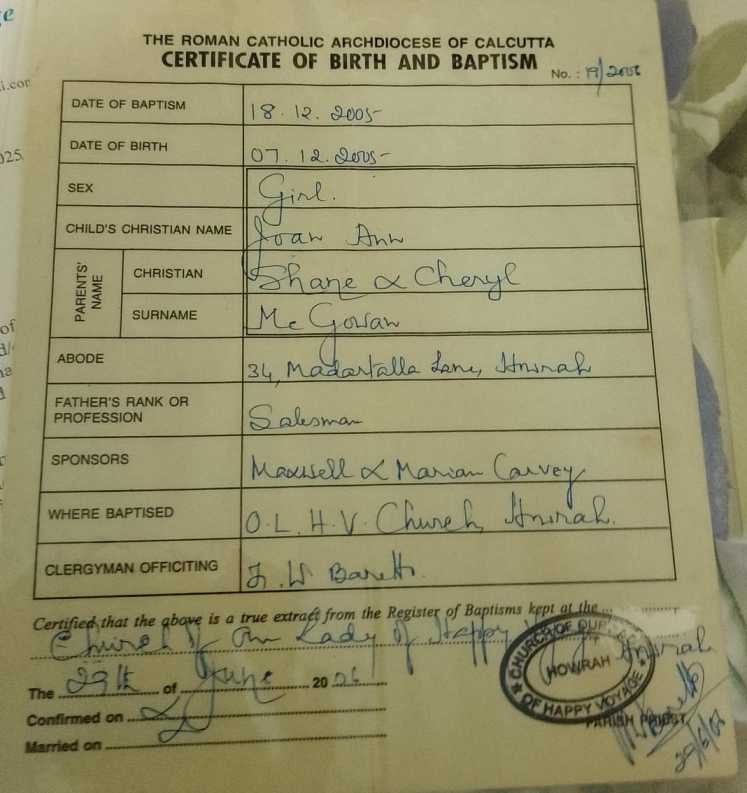 THE ROMAN CATHOLIC ARCHDIOCESE OF CALCUTTA
CERTIFICATE OF BIRTH AND BAPTISM
No. : 19/2006
DATE OF BAPTISM 18.12.2005-
DATE OF BIRTH 07.12.2005-
SEX Girl.
CHILD'S CHRISTIAN NAME Joan Ann
PARENTS' NAME
CHRISTIAN Shane & Cheryl
SURNAME Mc Gowan
ABODE 34, Madartalla Lane, Howrah
FATHER'S RANK OR PROFESSION Salesman
SPONSORS Maxwell & Marian Carvey
WHERE BAPTISED O.L.H.V. Church, Howrah.
CLERGYMAN OFFICITING Fr. W Baretto.
Certified that the above is a true extract from the Register of Baptisms kept at the
Church of Our Lady of Happy Howrah
The 29th of June 2006
Confirmed on
Married on
CHURCH OF OUR
HOWRAH
OF HAPPY VOYAGE
PARISH PRIEST
29/6/06
025
of